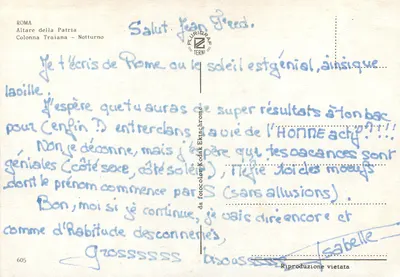 ROMA
Altare della Patria
Colonna Traiana - Notturno
Salut Jean Fred.
PLURIGRAF
TERNI
Je t'écris de Rome ou le soleil est génial, ainsi que
la ville.
J'espère que tu auras de super résultats à ton bac
pour (enfin!) entrer dans la vie de l'"HOMME
Non je déconne, mais j'espère que tes vacances sont
géniales (côté sexe, côté soleil), Mefie toi des meufs
dont le prénom commence par S (sans allusions).
Bon, moi si je continue, je vais dire encore et
comme d'habitude des conneries,
Grossssss bisousssss
Isabelle
da fotocolor Kodak Ektachrome
605
Riproduzione vietata